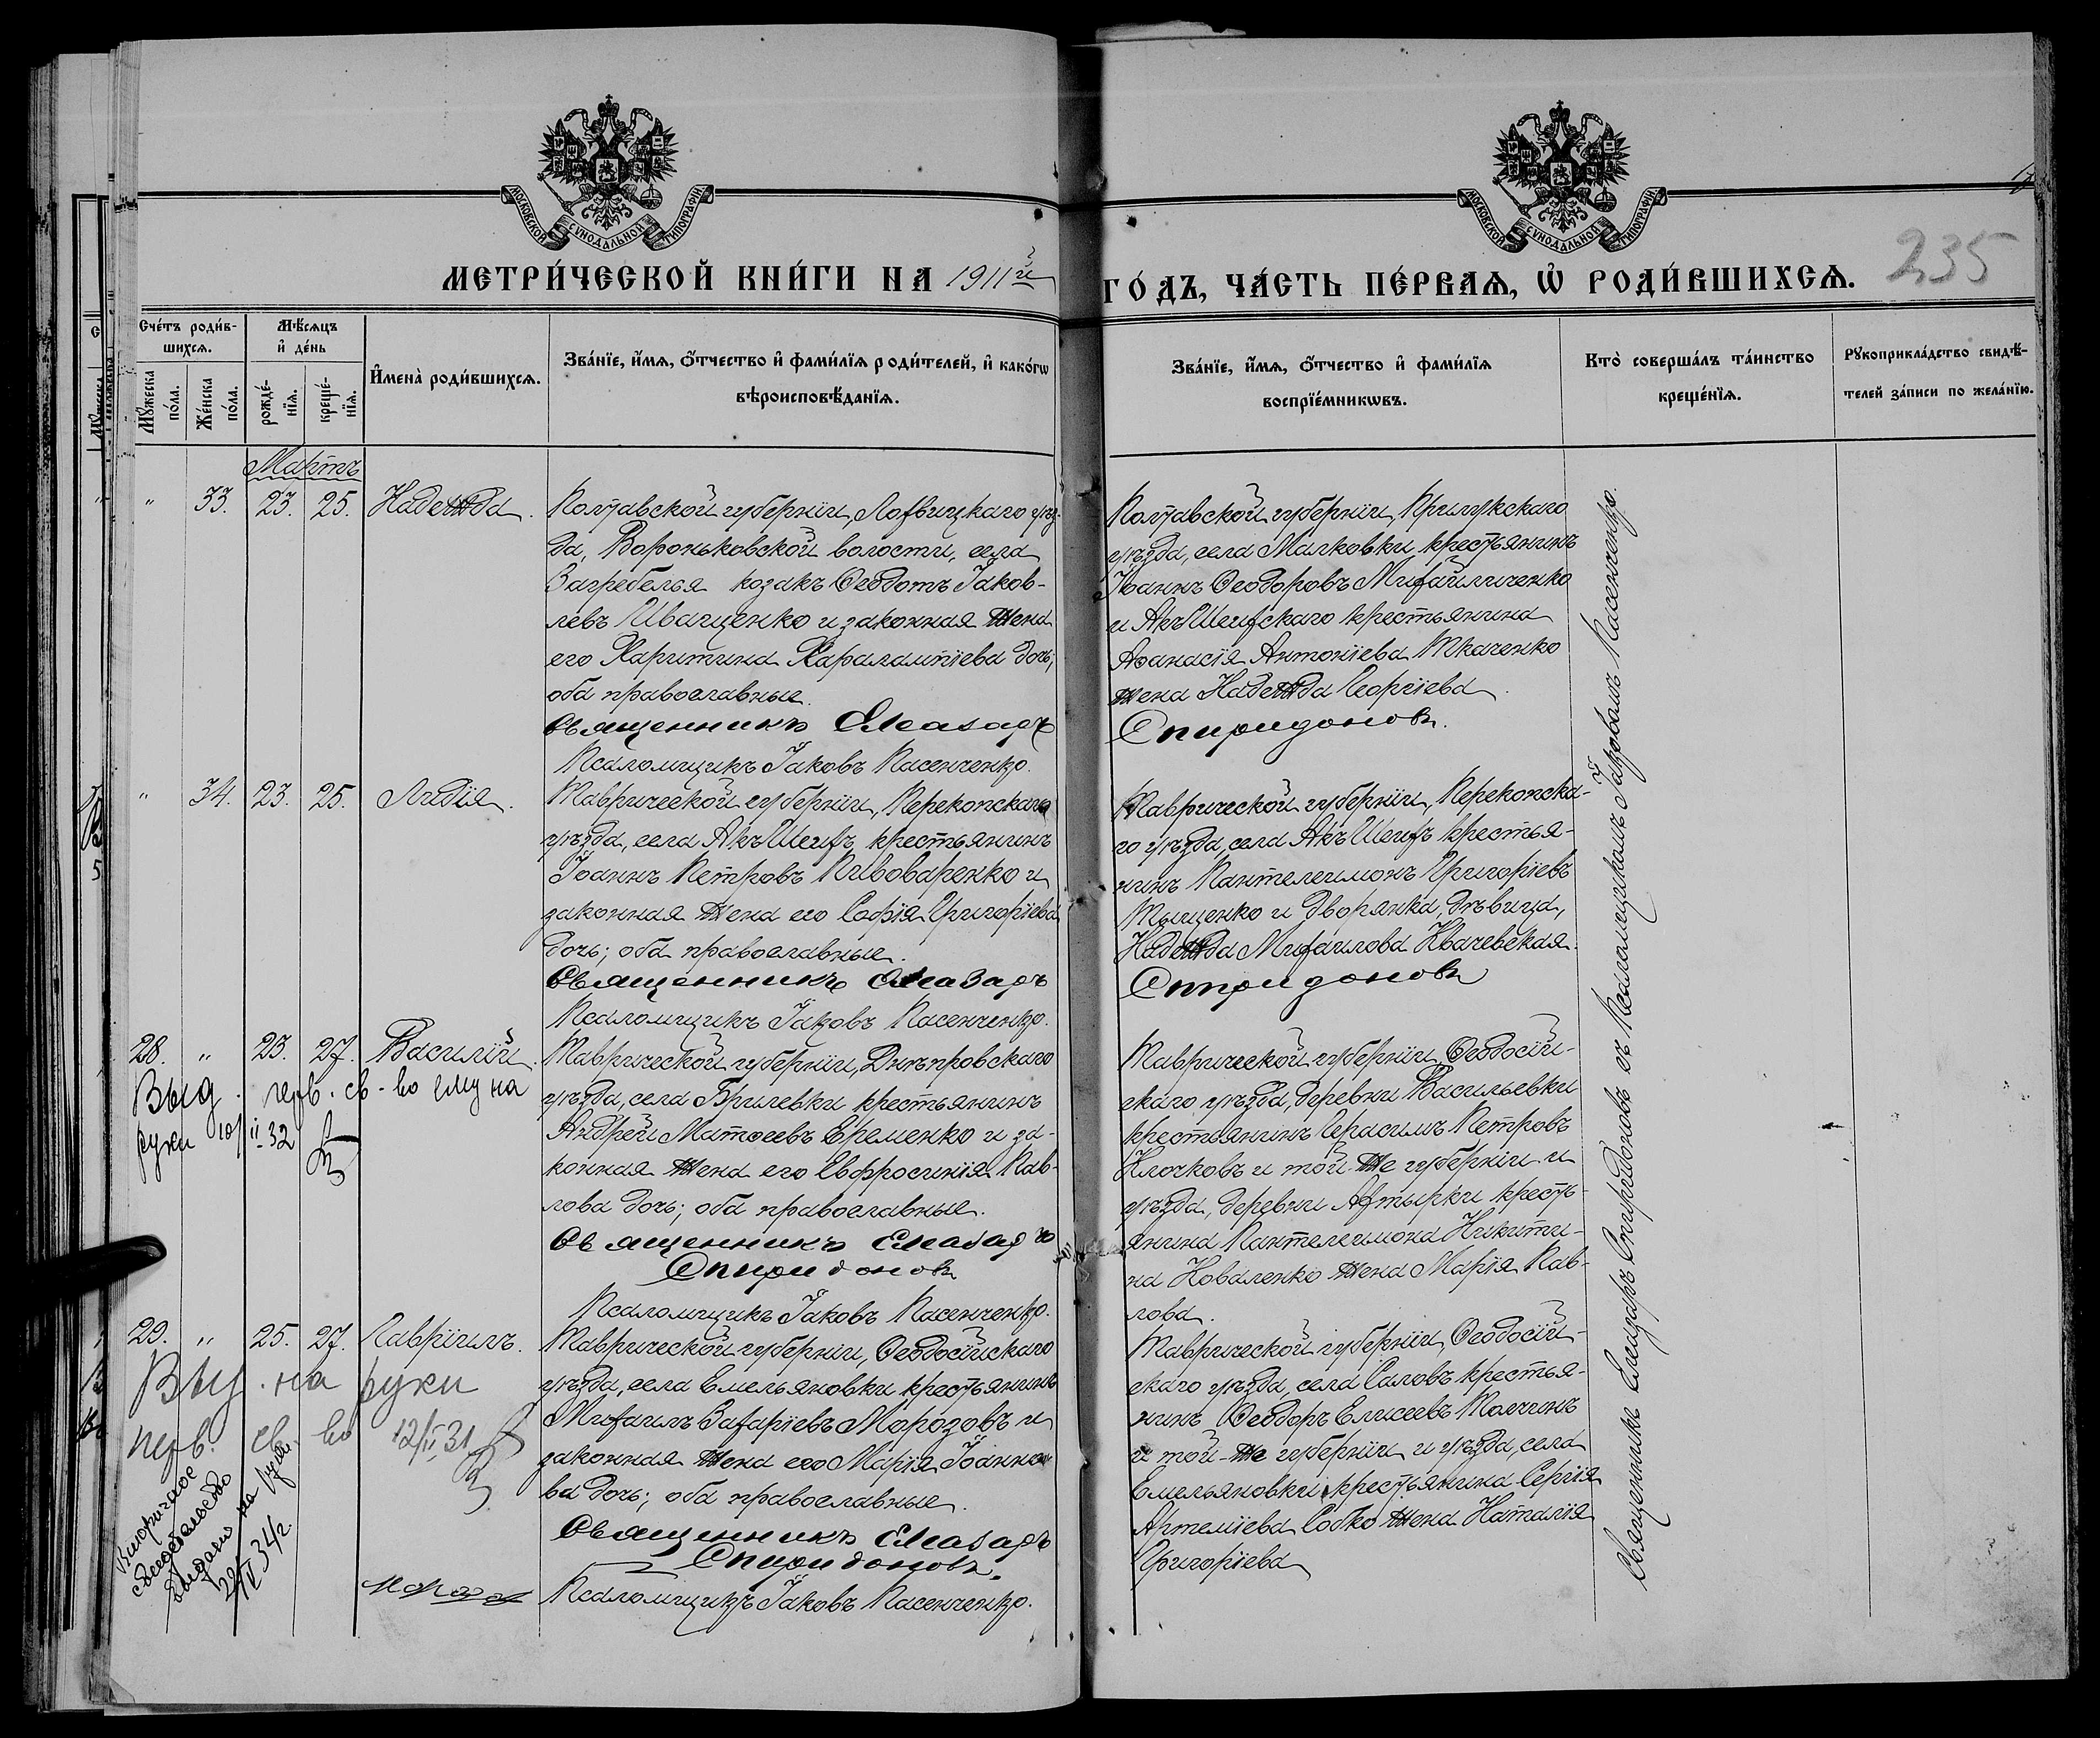 МОСКОВСКОЙ СУНОДАЛЬНОЙ ТИПОГРАФІИ
МОСКОВСКОЙ СУНОДАЛЬНОЙ ТИПОГРАФІИ
МЕТРИ́ЧЕСКОЙ КНИ́ГИ НА 1911й
ГО́ДЪ, ЧА́СТЬ ПЕ́РВАѦ, Ѿ РОДИ́ВШИХСѦ.
235
Сче́тъ роди́в-
шихсѧ.
Мꙋ́жеска по́ла.
Же́нска по́ла.
Мѣ́сѧцъ
и҆ де́нь
рожде́-
нїѧ.
креще́-
нїѧ.
И҆мена̀ роди́вшихсѧ.
Зва́нїе, и҆́мѧ, ѻ҆́тчество и҆ фами́лїѧ роди́телей, и҆ како́гѡ
вѣроисповѣ́данїѧ.
Зва́нїе, и҆́мѧ, ѻ҆́тчество и҆ фами́лїѧ
воспрїе́мникѡвъ.
Кто̀ соверша́лъ та́инство
креще́нїѧ.
Рꙋкоприкла́дство свидѣ́-
телей за́писи по жела́нїю.
Мартъ
" 33. 23. 25. Надежда.
Полтавской губерніи, Лохвицкаго уѣз-
да, Вороньковской волости, села
Загребелья козакъ Ѳеодотъ Іаков-
левъ Иващенко и законная жена
его Харитина Харалампіева дочь;
оба православные.
Священникъ Елеазаръ
Псаломщикъ Іаковъ Пасенченко.
Полтавской губерніи, Прилукскаго
уѣзда, села Малковки, крестьянинъ
Іоаннъ Ѳеодоровъ Михайличенко
и Акъ Шеихскаго крестьянина
Аѳанасія Антоніева Ткаченко
жена Надежда Георгіева.
Спиридоновъ.
" 34. 23. 25. Лидія.
Таврической губерніи, Перекопскаго
уѣзда, села Акъ Шеихъ, крестьянинъ
Іоаннъ Петровъ Пивоваренко и
законная жена его Софія Григоріева
дочь; оба православные.
Священникъ Елеазаръ
Псаломщикъ Іаковъ Пасенченко.
Таврической губерніи, Перекопска-
го уѣзда, села Акъ Шеихъ крестья-
нинъ Пантелеимонъ Григоріевъ
Тыщенко и дворянка, дѣвица,
Надежда Михаилова Квачевская.
Спиридоновъ
28. " 23. 27. Василій.
Выд. перв. св-во ему на
руки 10/II 32
Таврической губерніи, Днѣпровскаго
уѣзда, села Брилевки крестьянинъ
Андрей Матѳеевъ Еременко и за-
конная жена его Евфросинія Пав-
лова дочь; оба православные.
Священникъ Елеазаръ
Спиридоновъ
Псаломщикъ Іаковъ Пасенченко.
Таврической губерніи Ѳеодосій-
скаго уѣзда, деревни Васильевки
крестьянинъ Герасимъ Петровъ
Клочковъ и той-же губерніи и
уѣзда, деревни Ахтырки кресть-
янина Пантелеимона Никити-
на Коваленко жена Марія Пав-
лова.
29. " 25. 27. Гавріилъ.
Выд. на руки
перв. св-во 12/II 31
Вторичное
свидетельство
выдано на руки
34 г.
Таврической губерніи, Ѳеодосійскаго
уѣзда, села Емельяновки крестьянинъ
Михаилъ Захаріевъ Морозовъ и
законная жена его Марія Іоанно-
ва дочь; оба православные.
Священникъ Елеазаръ
Спиридоновъ.
Псаломщикъ Іаковъ Пасенченко.
Таврической губерніи Ѳеодосій-
скаго уѣзда, села Саловъ крестья-
нинъ Ѳеодоръ Елисеевъ Толчинъ
и той-же губерніи и уѣзда, села
Емельяновки крестьянина Сергія
Артеміева Собко жена Наталія
Григоріева
Священникъ Елеазаръ Спиридоновъ съ Псаломщикомъ Іаковомъ Пасенченко.